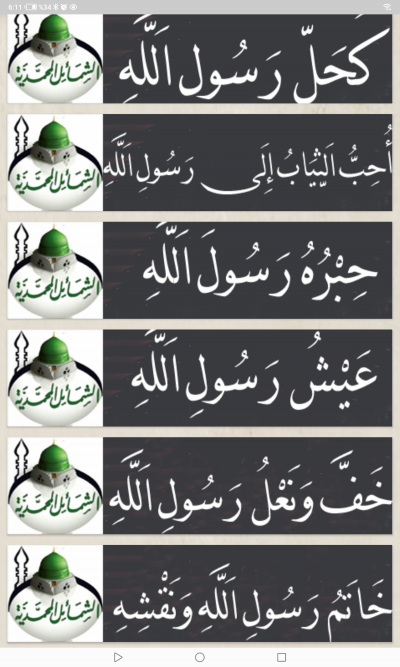 6:11 %34
كَحَلّ رَسُول اَللَّهِ
الشمائل المحمدية
أُحِبُّ اَلثِّيَابُ إِلَى رَسُولِ اَللَّهِ
الشمائل المحمدية
حِبْرُهُ رَسُولَ اَللَّهِ
الشمائل المحمدية
عَيْشُ رَسُولِ اَللَّهِ
الشمائل المحمدية
خَفَّ وَنَعْلُ رَسُولِ اَللَّهِ
الشمائل المحمدية
خَاتَمُ رَسُولِ اَللَّهِ وَنَقْشِهِ
الشمائل المحمدية